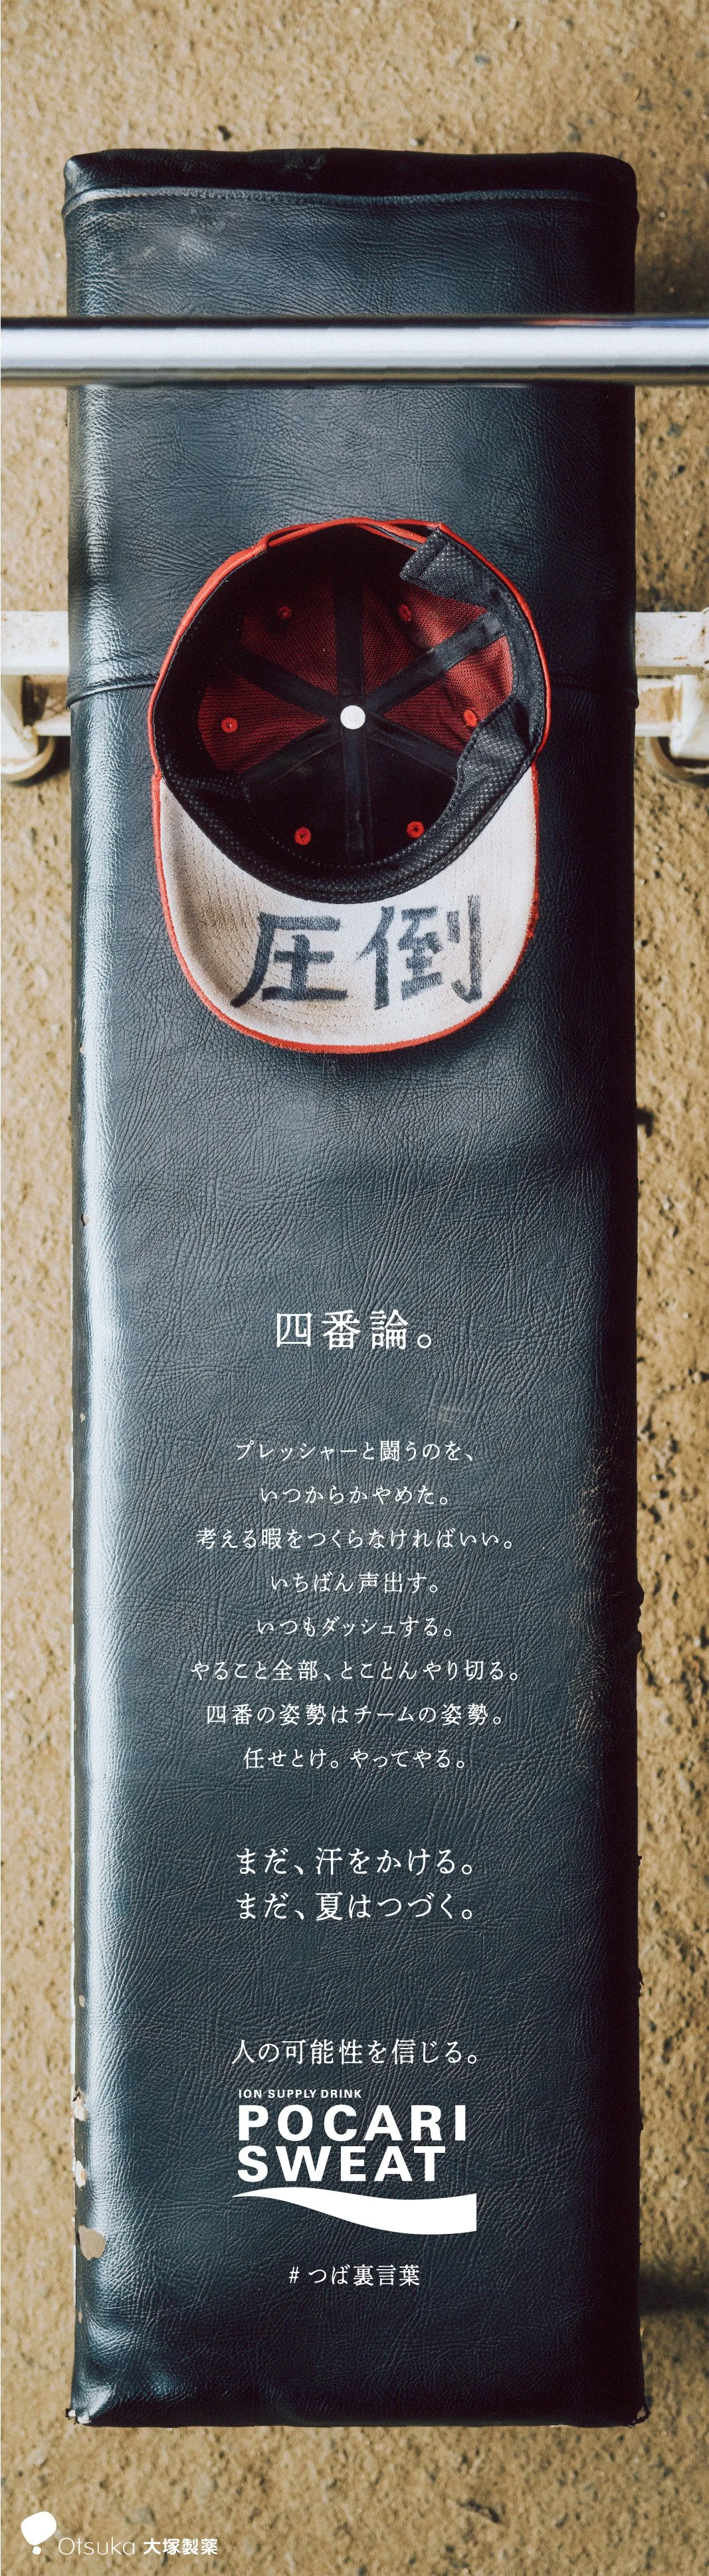 圧倒
四番論。
プレッシャーと闘うのを、
いつからかやめた。
考える暇をつくらなければいい。
いちばん声出す。
いつもダッシュする。
やること全部、とことんやり切る。
四番の姿勢はチームの姿勢。
任せとけ。やってやる。
まだ、汗をかける。
まだ、夏はつづく。
人の可能性を信じる。
ION SUPPLY DRINK
POCARI
SWEAT
# つば裏言葉
Otsuka 大塚製薬